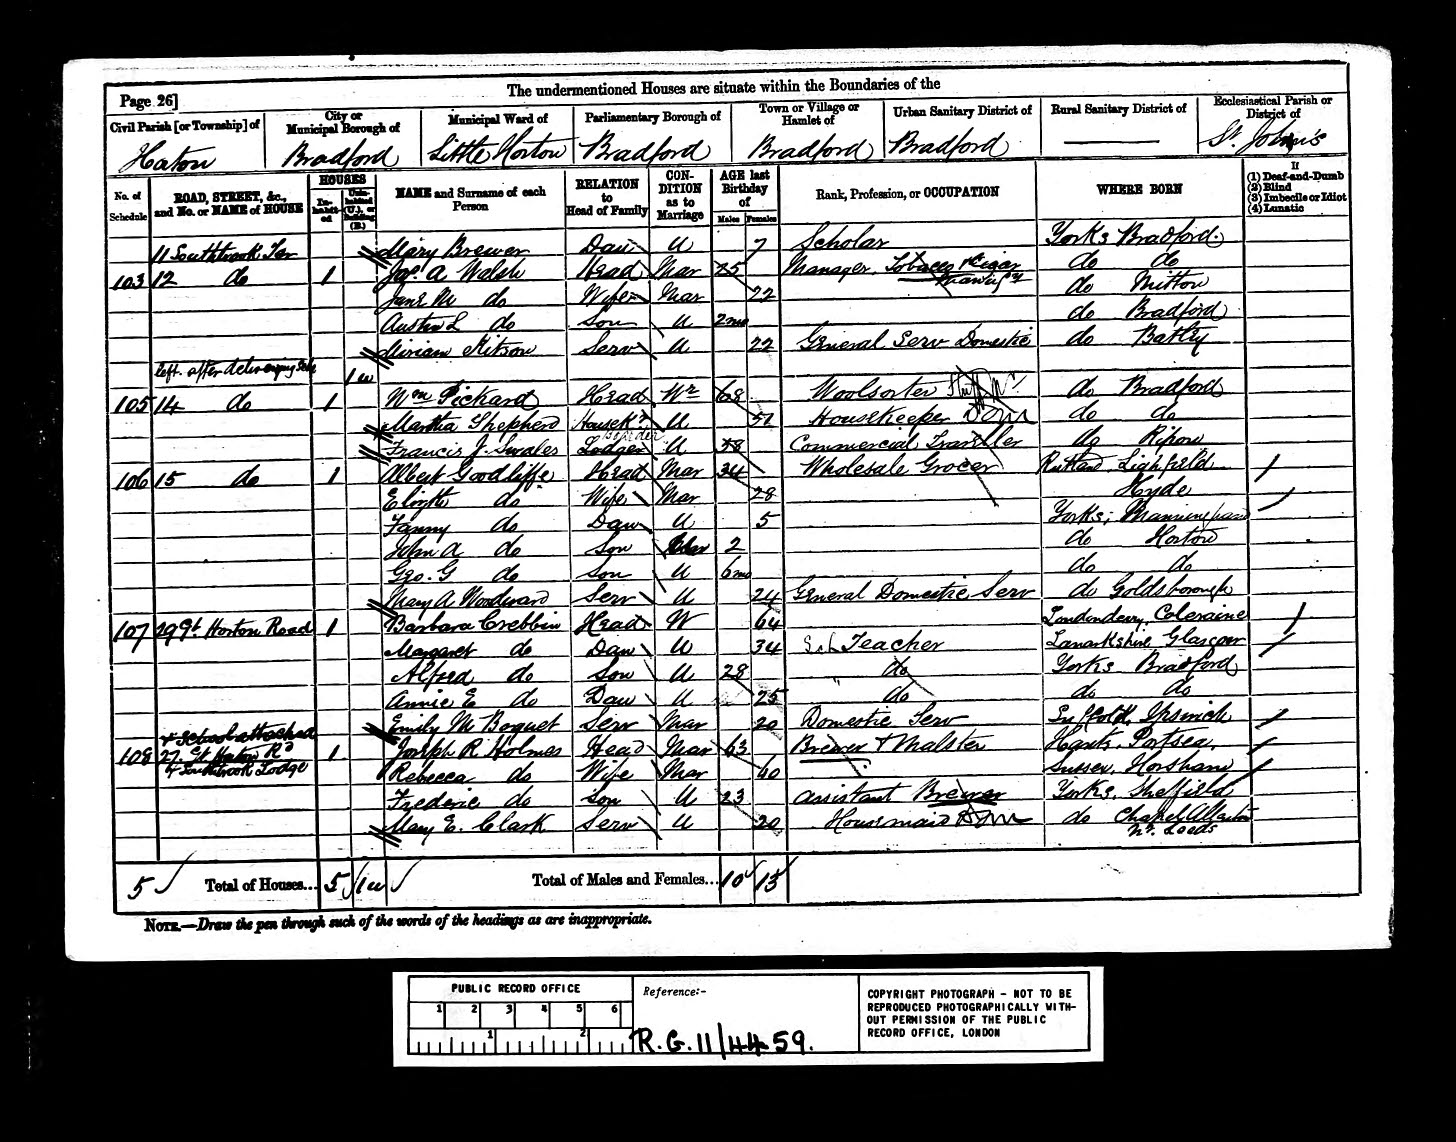 The undermentioned Houses are situate within the Boundaries of the
Page 26]
Civil Parish [or Township] of
City or Municipal Borough of
Municipal Ward of
Parliamentary Borough of
Town or Village or Hamlet of
Urban Sanitary District of
Rural Sanitary District of
Ecclesiastical Parish or District of
Haton Bradford Little Horton Bradford Bradford Bradford St. John's
No. of Schedule
ROAD, STREET, &c., and No. or NAME of HOUSE
HOUSES
Inhabited
Uninhabited (U.), or Building (B.)
NAME and Surname of each Person
RELATION to Head of Family
CONDITION as to Marriage
AGE last Birthday of
Males Females
Rank, Profession, or OCCUPATION
WHERE BORN
If
(1) Deaf-and-Dumb
(2) Blind
(3) Imbecile or Idiot
(4) Lunatic
11 Southbrook Ter Mary Brewer Daur U 7 Scholar Yorks Bradford
103 12 do 1 Jos. A Walsh Head Mar 25 Manager Tobacco & Cigar do do
Jane M do Wife Mar 22 do Mitton
Austin L do Son U 2mo do Bradford
Miriam Kitson Serv U 22 General Serv Domestic do Batley
left after delivering 1 u
105 14 do 1 Wm Pickard Head Wr 68 Woolsorter do Bradford
Martha Shepherd Housekr U 51 Housekeeper Dom do do
Boarder
Francis J. Swales Lodger U 18 Commercial Traveller do Ripon
106 15 do 1 Albert Goodliffe Head Mar 34 Wholesale Grocer Rutland
do Wife Mar 28 Hyde
Fanny do Daur U 5 Yorks, Manningham
John A do Son 2 do Horton
Geo. G do Son U 6mo do do
Mary A Woodward Serv U 24 General Domestic Serv do Goldsborough
107 29 Gt Horton Road 1 Barbara Crebbin Head W 64 Londonderry, Coleraine
Margaret do Daur U 34 Sch Teacher Lanarkshire, Glasgow
Alfred do Son U 28 do Yorks Bradford
Annie E do Daur U 25 do do do
& School attached Emily M Boquet Serv Mar 20 Domestic Serv Suffolk, Ipswich
108 27 Gt Horton Rd 1 Joseph R Holmes Head Mar 63 Brewer & Malster Hants, Portsea
& Southbrook Lodge Rebecca do Wife Mar 40 Sussex, Horsham
Frederic do Son U 23 Assistant Brewer Yorks, Sheffield
Mary E. Clark Serv U 20 Housemaid Dom do Chapel Allerton
Nr. Leeds
5 Total of Houses... 5 1 u Total of Males and Females... 10 13
NOTE.—Draw the pen through such of the words of the headings as are inappropriate.
PUBLIC RECORD OFFICE
1 2 3 4 5 6
1 2
Reference:-
R.G. 11/4459.
COPYRIGHT PHOTOGRAPH - NOT TO BE
REPRODUCED PHOTOGRAPHICALLY WITH-
OUT PERMISSION OF THE PUBLIC
RECORD OFFICE, LONDON